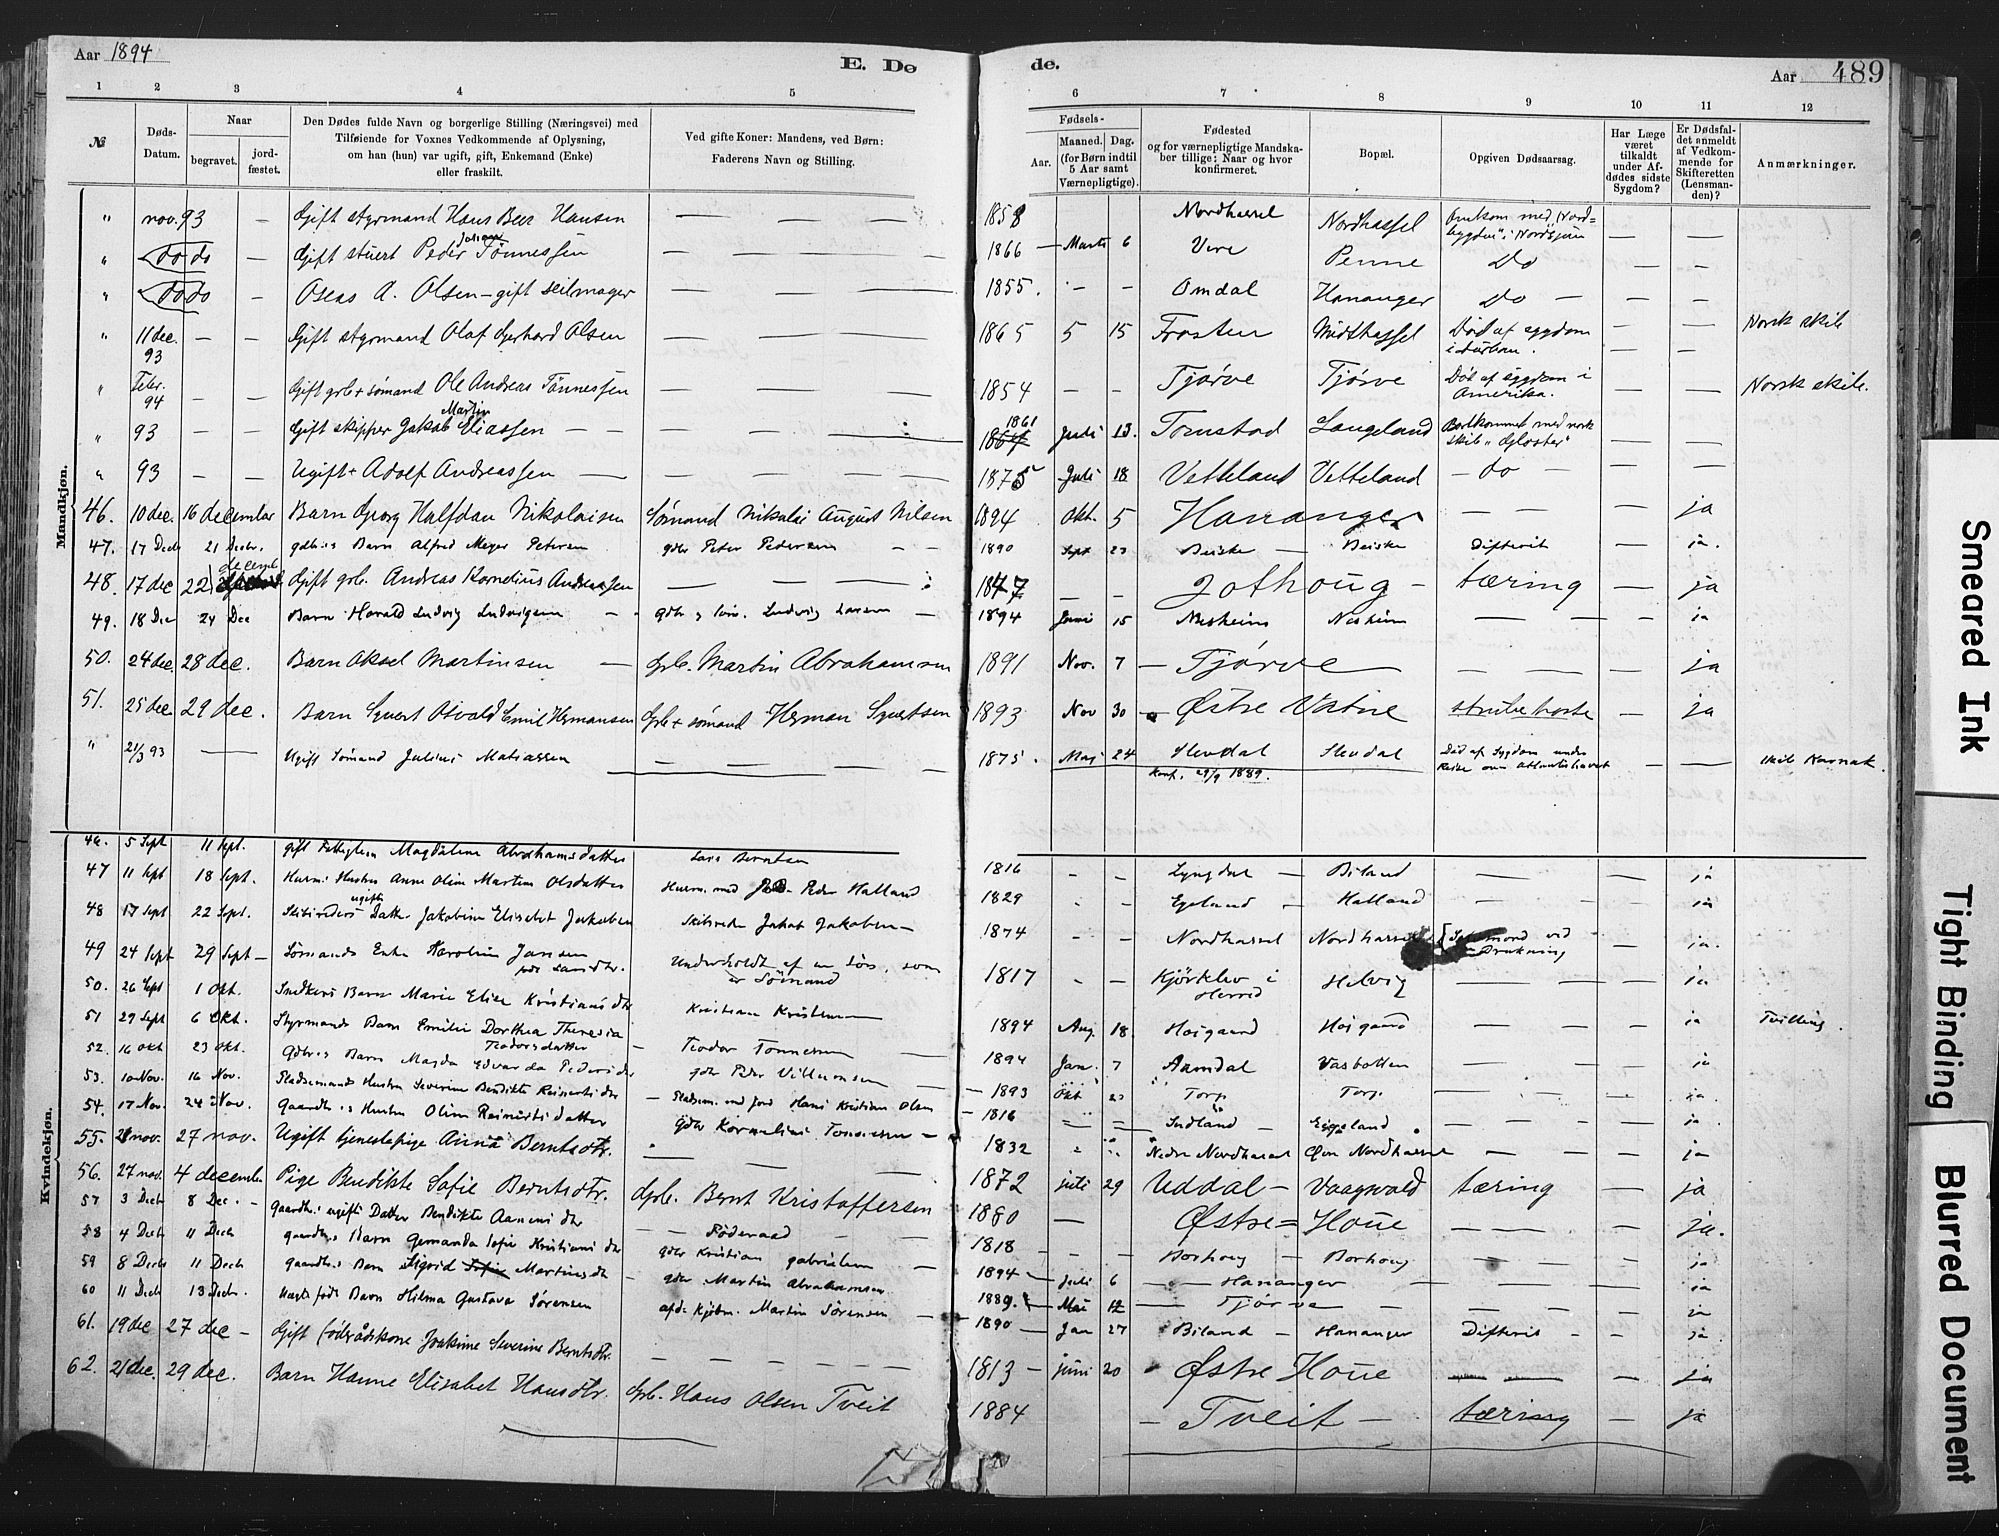 Aar 1894
E. Dø
de.
Aar 489
1 2 3 4 5 6 7 8 9 10 11 12
№
Døds-
Datum.
Naar
begravet.
jord-
fæstet.
Den Dødes fulde Navn og borgerlige Stilling (Næringsvei) med
Tilføiende for Voxnes Vedkommende af Oplysning,
om han (hun) var ugift, gift, Enkemand (Enke)
eller fraskilt.
Ved gifte Koner: Mandens, ved Børn:
Faderens Navn og Stilling.
Fødsels-
Aar.
Maaned. Dag.
(for Børn indtil
5 Aar samt
Værnepligtige).
Fødested
og for værnepligtige Mandska-
ber tillige: Naar og hvor
konfirmeret.
Bopæl.
Opgiven Dødsaarsag.
Har Læge
været
tilkaldt
under Af-
dødes sidste
Sygdom?
Er Dødsfal-
det anmeldt
af Vedkom-
mende for
Skifteretten
(Lensman-
den)?
Anmærkninger.
Mandkjøn.
" nov. 93 — Gift styrmand Hans Beer Hansen — — — 1858 Nordhassel Nordhassel Omkom med "Nord=
bygden" i Nordsjøen — —
" do do — Gift stuert Peder Johan Tönnessen — — — 1866 — Marts 6 Vere Penne Do — —
" do do — Oseas A. Olsen — gift seilmager — — — 1855. - - Omdal Hananger Do — — —
" 11 dec. 93 — — Gift styrmand Olaf Gerhard Olsen — — — 1865 5 15 Frøsten Midthassel Död af sygdom
i Durban. — — Norsk skib
" Febr. 94 — — Gift grb. + sømand Ole Andreas Tönnessen — — — 1854 — - Tjørve Tjørve Död af sygdom i
Amerika. — — Norsk skib.
" 93 — — Gift skipper Jakob Martin Eliassen — — — 1861 Juli 13. Tomstad Langeland Bortkommet med norsk
skib "Gloster" — —
" 93 — — Ugift + Adolf Andreassen — — — 1875 Juli 18 Vetteland Vetteland — do — — —
46. 10 dec. 16 december Barn Georg Halfdan Nikolaisen Sømand Nikolai August Nilsen 1894 Okt. 5 Hananger — — — ja
47. 17 Decb 21 Decbr. gdbr.s Barn Alfred Meyer Petersen gdbr Peter Pedersen — - 1890 Sept 23 Beiske — Beiske Difterit — ja.
48. 17 dec 22 decemb Gift grb. Andreas Kornelius Andreassen — — 1847 — - Jothoug — tæring — ja
49. 18 Dec 24 Dec Barn Harald Ludvig Ludvigsen - gdbr og søm. Ludvig Larsen — 1894 Juni 15 Nesheim Nesheim — — ja
50. 24 dec. 28 dec. Barn Aksel Martinsen — Grb. Martin Abrahamsen 1891 Nov. 7 — Tjørve — — — ja
51. 25 dec. 29 dec. Barn Syvert Osvald Emil Hermansen Grb + sømand Herman Syvertsen 1893 Nov 30 Østre Vatne strubehoste — ja
" 21/3 93 — Ugift Sømand Julius Matiassen — — — 1875. Maj 24 Slevdal Slevdal Död af Sygdom under
Konf. 29/9 1889. Reise over Atlanterhavet — — skib Karnak.
Kvindekjøn.
46. 5 Sept 11 Sept. gift Fattiglem Magdalene Abrahamsdatter Lars Berntsen 1816 - - Lyngdal — Biland — — — ja
47 11 Sept 18 Sept. Husm. Hustru Anne Oline Martine Olsdatter Husm. med Jord Peder Hatland 1829 - - Egeland — Hatland — — — ja
48 17 Sept 22 Sept. Skibreders ugifte Datter Jakobine Elisabet Jakobsen Skibsreder Jakob Jakobsen — 1874 - - Nordhassel Nordhassel Selvmord ved
Drukning — ja.
49 24 Sept 29 Sept — Sømands Enke Karoline Jansen
født Larsdtr. Underholdt af en Søn, som
er Sömand 1817 - - Kjörklev i
Herred Helvig — — ja
50. 26 Sept 1 Okt. Snedkers Barn Marie Elise Kristiansdtr Kristian Kristensen 1894 Aug. 18. Høigaard Høigaard — — ja Tvilling.
51 29 Sept 6 Okt. Styrmands Barn Emilie Dorthea Theresia
Teodorsdatter — Teodor Tönnessen — 1894 Jan. 7 Aamdal Vasbotten — — ja
52. 16 Okt 23 Okt. Gdbr.s Barn Magda Edvarda Pedersdtr gdbr Peder Villumsen — 1893 Okt 23 Torp Torp — — ja.
53. 10 Nov. 16 Nov. Pladsemands Hustru Severine Bendikte Reinertsdtr — Pladsem. med Jord Hans Kristian Olsen — 1816 — — Indland — Eggeland — — ja.
54. 17 Nov. 24 Nov. Gaardbr.s Hustru Oline Reinertsdatter Gdbr Kornelius Tönnessen — 1832 Nedre Nordhassel Øvre Nordhassel — — — ja
55. 21 nov. 27 nov. Ugift tjenestepige Anna Berntsdtr. — — — 1872 juli 29 Uddal — Vaagsvold tæring — ja
56. 27 nov. 4 december Pige Bendikte Sofie Berntsdtr. Grb. Bernt Kristoffersen 1880 — Østre = Houe — — — ja.
57 3 Decb 8 Dec. - Gaardbr.s ugift Datter Bendikte Aanensdtr — Föderaad — - 1818 - - Borhoug — Borhoug — — ja
58 4 Decb 11 Decb Gaardbr.s Barn Gemanda Sofie Kristiansdtr gdbr Kristian Gabrielsen — 1894 — Juli 6 — Hananger — — — ja
59 8 Decb 11 Decb Gaardbr.s Barn Sigrid Martinsdtr — gdbr Martin Abrahamsen 1889. Mai 12 — Tjörve — — — ja
60 11 Decb 13 Decbr. Uægte født Barn Hilma Gustava Sørensen afd. Kjøbm. Martin Sørensen — 1890 — Jan 27 Biland — Hananger Difterit - - ja.
61. 19 dec 27 dec — Gift føderådskone Joakime Severine Berntsdtr. — — — 1813 — juni 20 Østre Houe — — — ja
62. 21 dec. 29 dec. Barn Hanne Elisabet Hansdtr. Grb. Hans Olsen Tveit 1884 — Tveit — tæring — ja
Smeared Ink
Tight Binding
Blurred Document